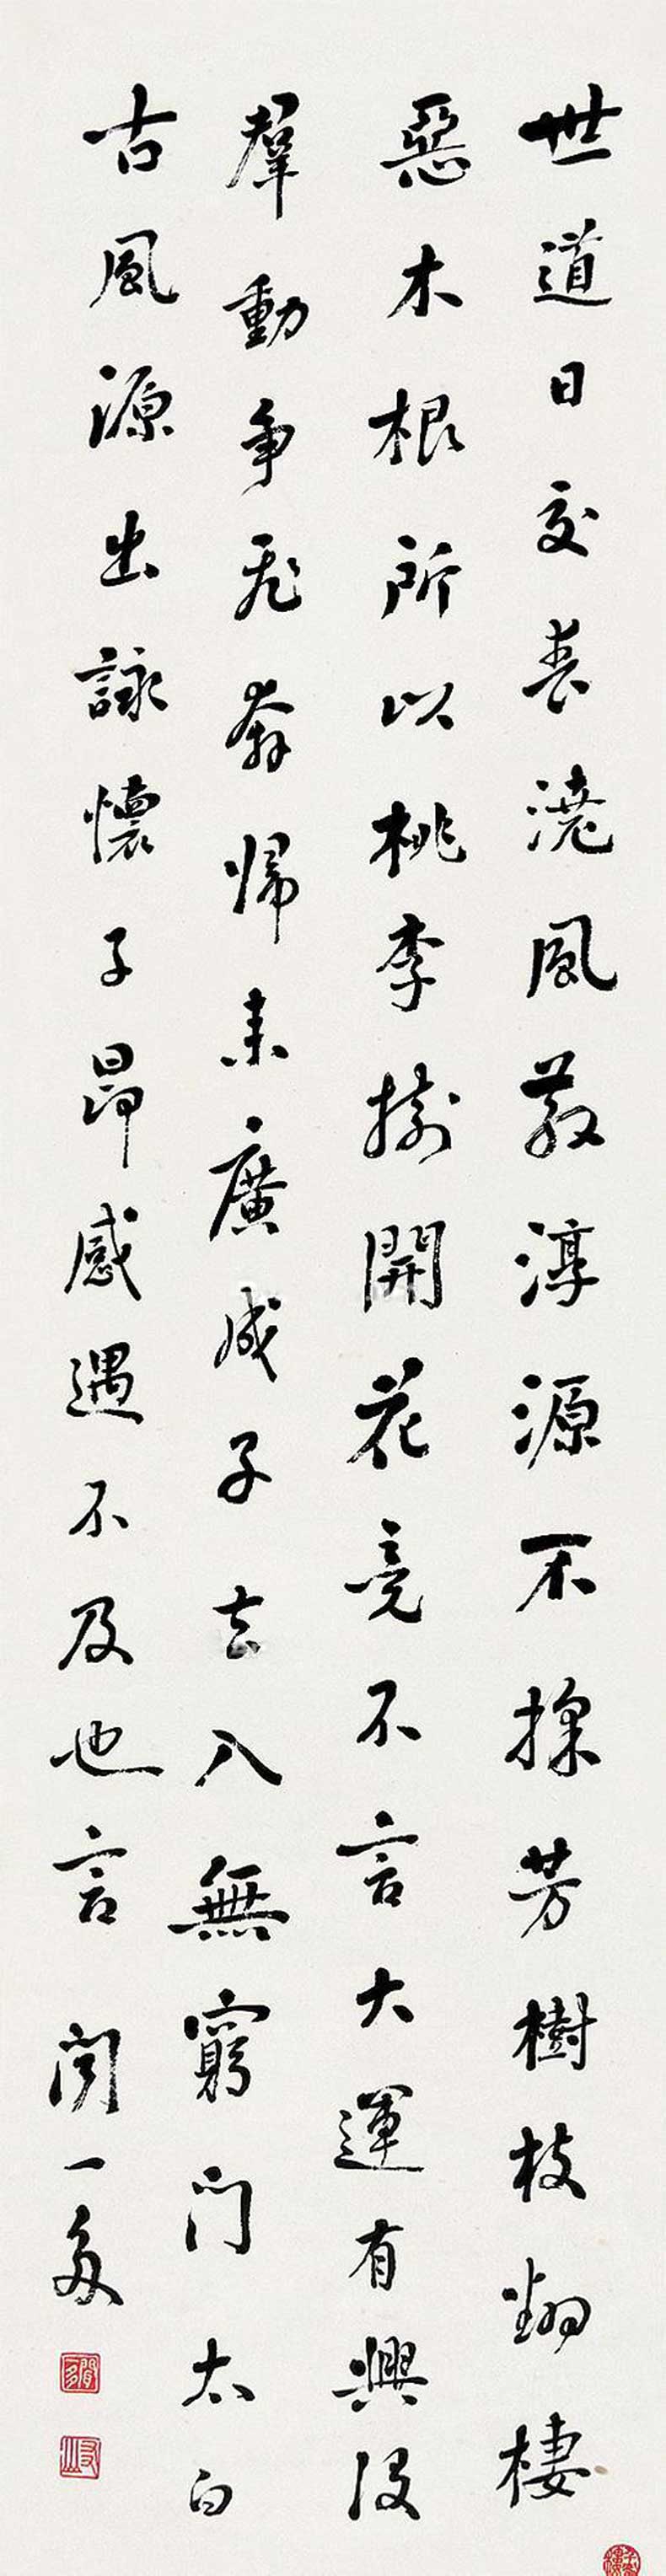 世道日交喪澆風散淳源不採芳樹枝翻棲
惡木根所以桃李樹開花竟不言大運有興没
羣動争飛奔歸来廣成子去入無窮门太白
古風源出詠懷子昂感遇不及也言
闻一多